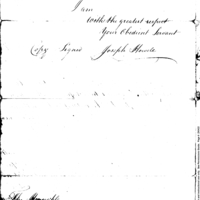 I am
with the greatest respect
Your Obedient Servant
Copy Signed Joseph Howe
The Honorable